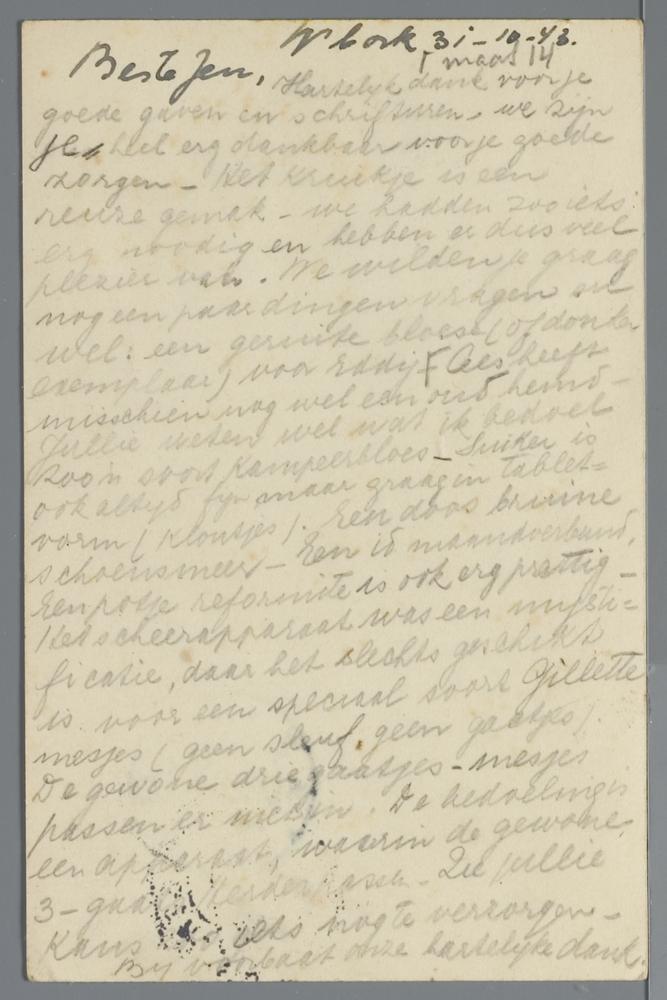 W'bork 31-10-43.
Beste Jen,
1 maat 14
Hartelyk dank voor je
goede gaven en schrifturen. we zijn
je heel erg dankbaar voor je goede
zorgen - Het kruikje is een
reuze gemak - we hadden zoo iets
erg noodig en hebben er dus veel
plezier van. We wilden je graag
nog een paar dingen vragen en
wel: een geruite bloese (of donker
exemplaar) voor Eddy F Cees heeft
misschien nog wel een oud hemd -
Jullie weten wel wat ik bedoel
zoo'n soort kampeerbloes - Suiker is
ook altyd fyn maar graag in tablet=
vorm (klontjes). Een doos bruine
schoensmeer - Een id maandverband.
Een potje reformite is ook erg prettig -
Het scheerapparaat was een mysti=
ficatie, daar het slechts geschikt
is voor een speciaal soort Gillette
mesjes (geen sleuf, geen gaatjes).
De gewone drie gaatjes - mesjes
passen er niet in. De bedoeling is
een apparaat, waarin de gewone
3-gaats passen - Zie jullie
kans iets nog te verzorgen -
By voorbaat onze hartelyke dank.